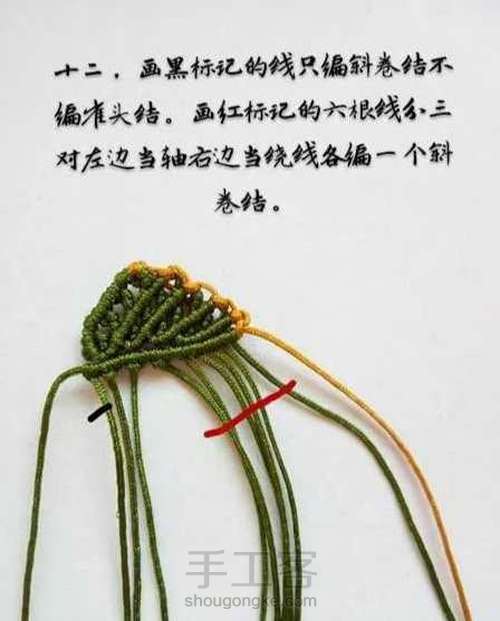 十二．画黑标记的线只编斜卷结不
编雀头结。画红标记的六根线分三
对左边当轴右边当绕线各编一个斜
卷结。
手工客
shougongke.com